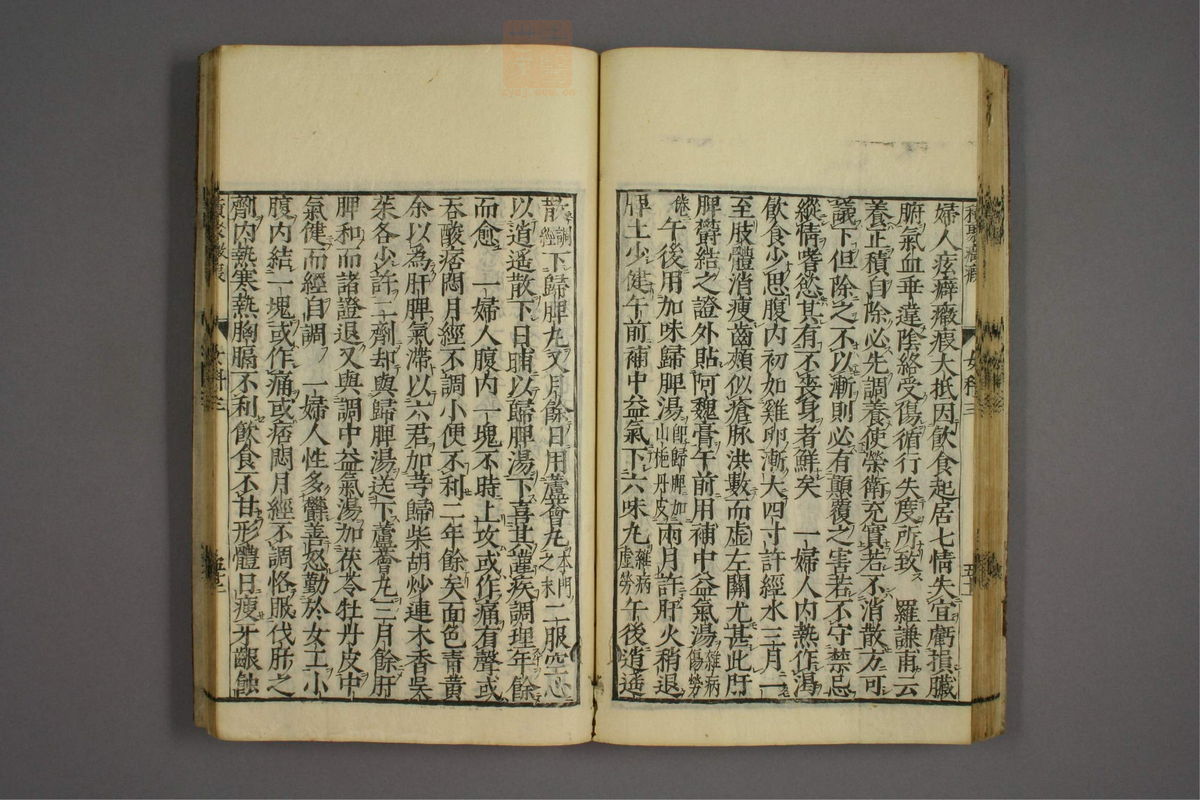 積聚癥瘕 女科三
婦人痃癖癥瘕大抵因飲食起居七情失宜虧損臟
腑氣血乖違陰絡受傷循行失度所致 羅謙甫云
養正積自除必先調養使榮衛充實若不消散方可
議下但除之不以漸則必有顛覆之害若不守禁忌
縱情嗜慾其有不喪身者鮮矣 一婦人內熱作渴
飲食少思腹內初如雞卵漸大四寸許經水三月一
至肢體消瘦齒頰似瘡脉洪數而虛左關尤甚此肝
脾鬱結之證外貼阿魏膏午前用補中益氣湯雜病勞傷
倦午後用加味歸脾湯即歸脾加山梔丹皮兩月許肝火稍退
脾土少健午前補中益氣下六味丸雜病虛勞午後逍遙
散調經下歸脾丸又月餘日用蘆薈丸本門之末二服空心
以逍遙散下日晡以歸脾湯下喜其謹疾調理年餘
而愈 一婦人腹內一塊不時上攻或作痛有聲或
吞酸痞悶月經不調小便不利二年餘矣面色青黃
余以為肝脾氣滯以六君加芎歸柴胡炒連木香吳
茱各少許二劑却與歸脾湯送下蘆薈丸三月餘肝
脾和而諸證退又與調中益氣湯加茯苓牡丹皮中
氣健而經自調 一婦人性多鬱善怒勤於女工小
腹內結一塊或作痛或痞悶月經不調恪服伐肝之
劑內熱寒熱胸膈不利飲食不甘形體日瘦牙齦蝕
女科三